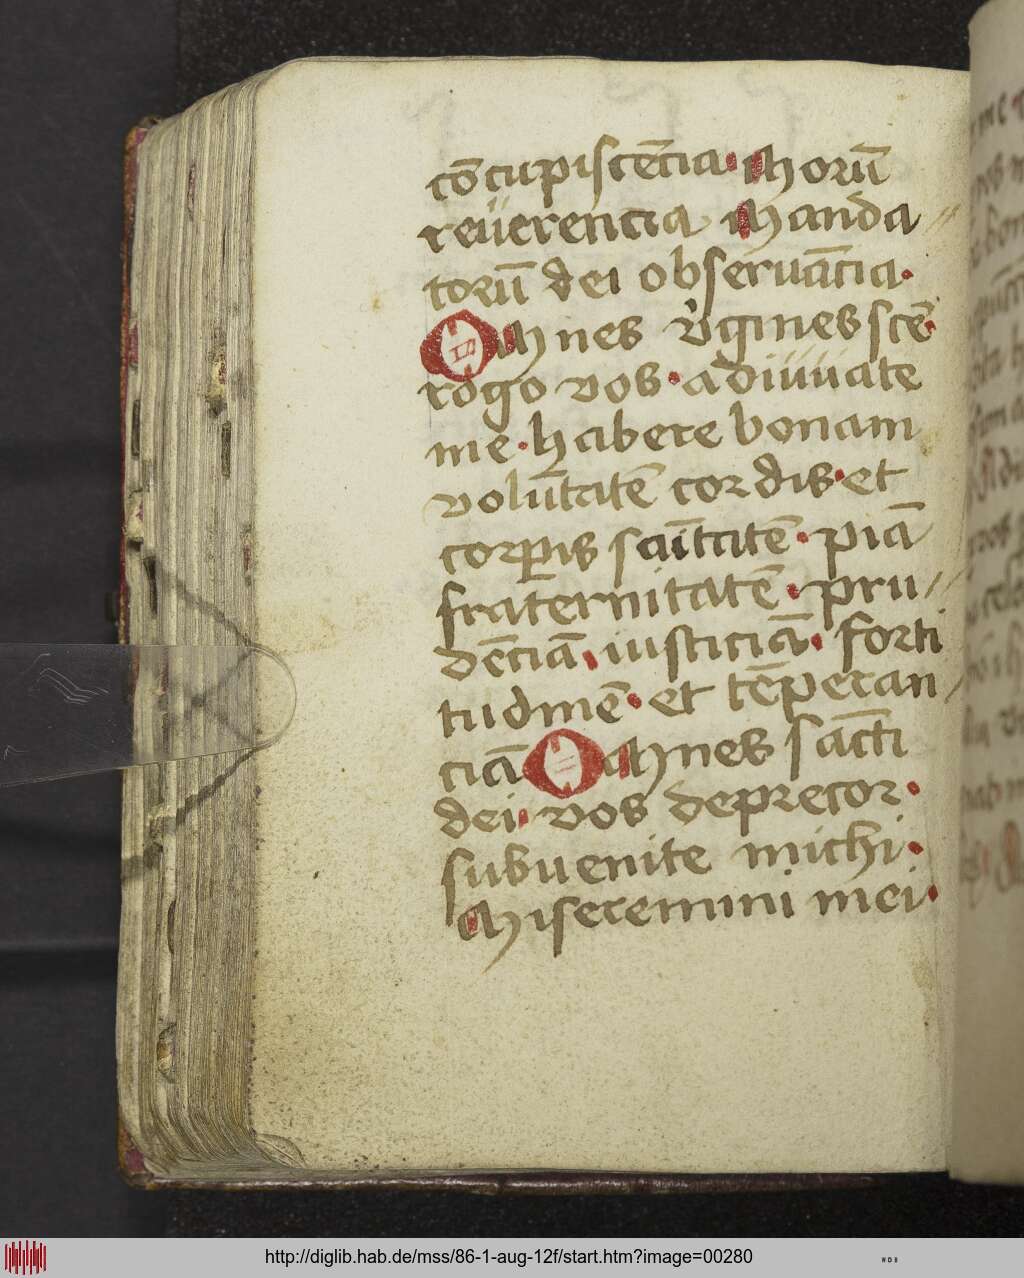 cōcupiscēcia · Morū
reuerencia Manda
torū dei obseruācia ·
Omnes v̓gines scē ·
rogo vos · adiuuate
me · habere bonam
volūtatē cordis · et
corꝑis scītatē · piā
fraternitatē · pru
dēciā · iusticiā · forti
tudinē · et tēperan
ciā Omnes sācti
dei · vos deprecor ·
subuenite michi ·
Miseremini mei ·
http://diglib.hab.de/mss/86-1-aug-12f/start.htm?image=00280